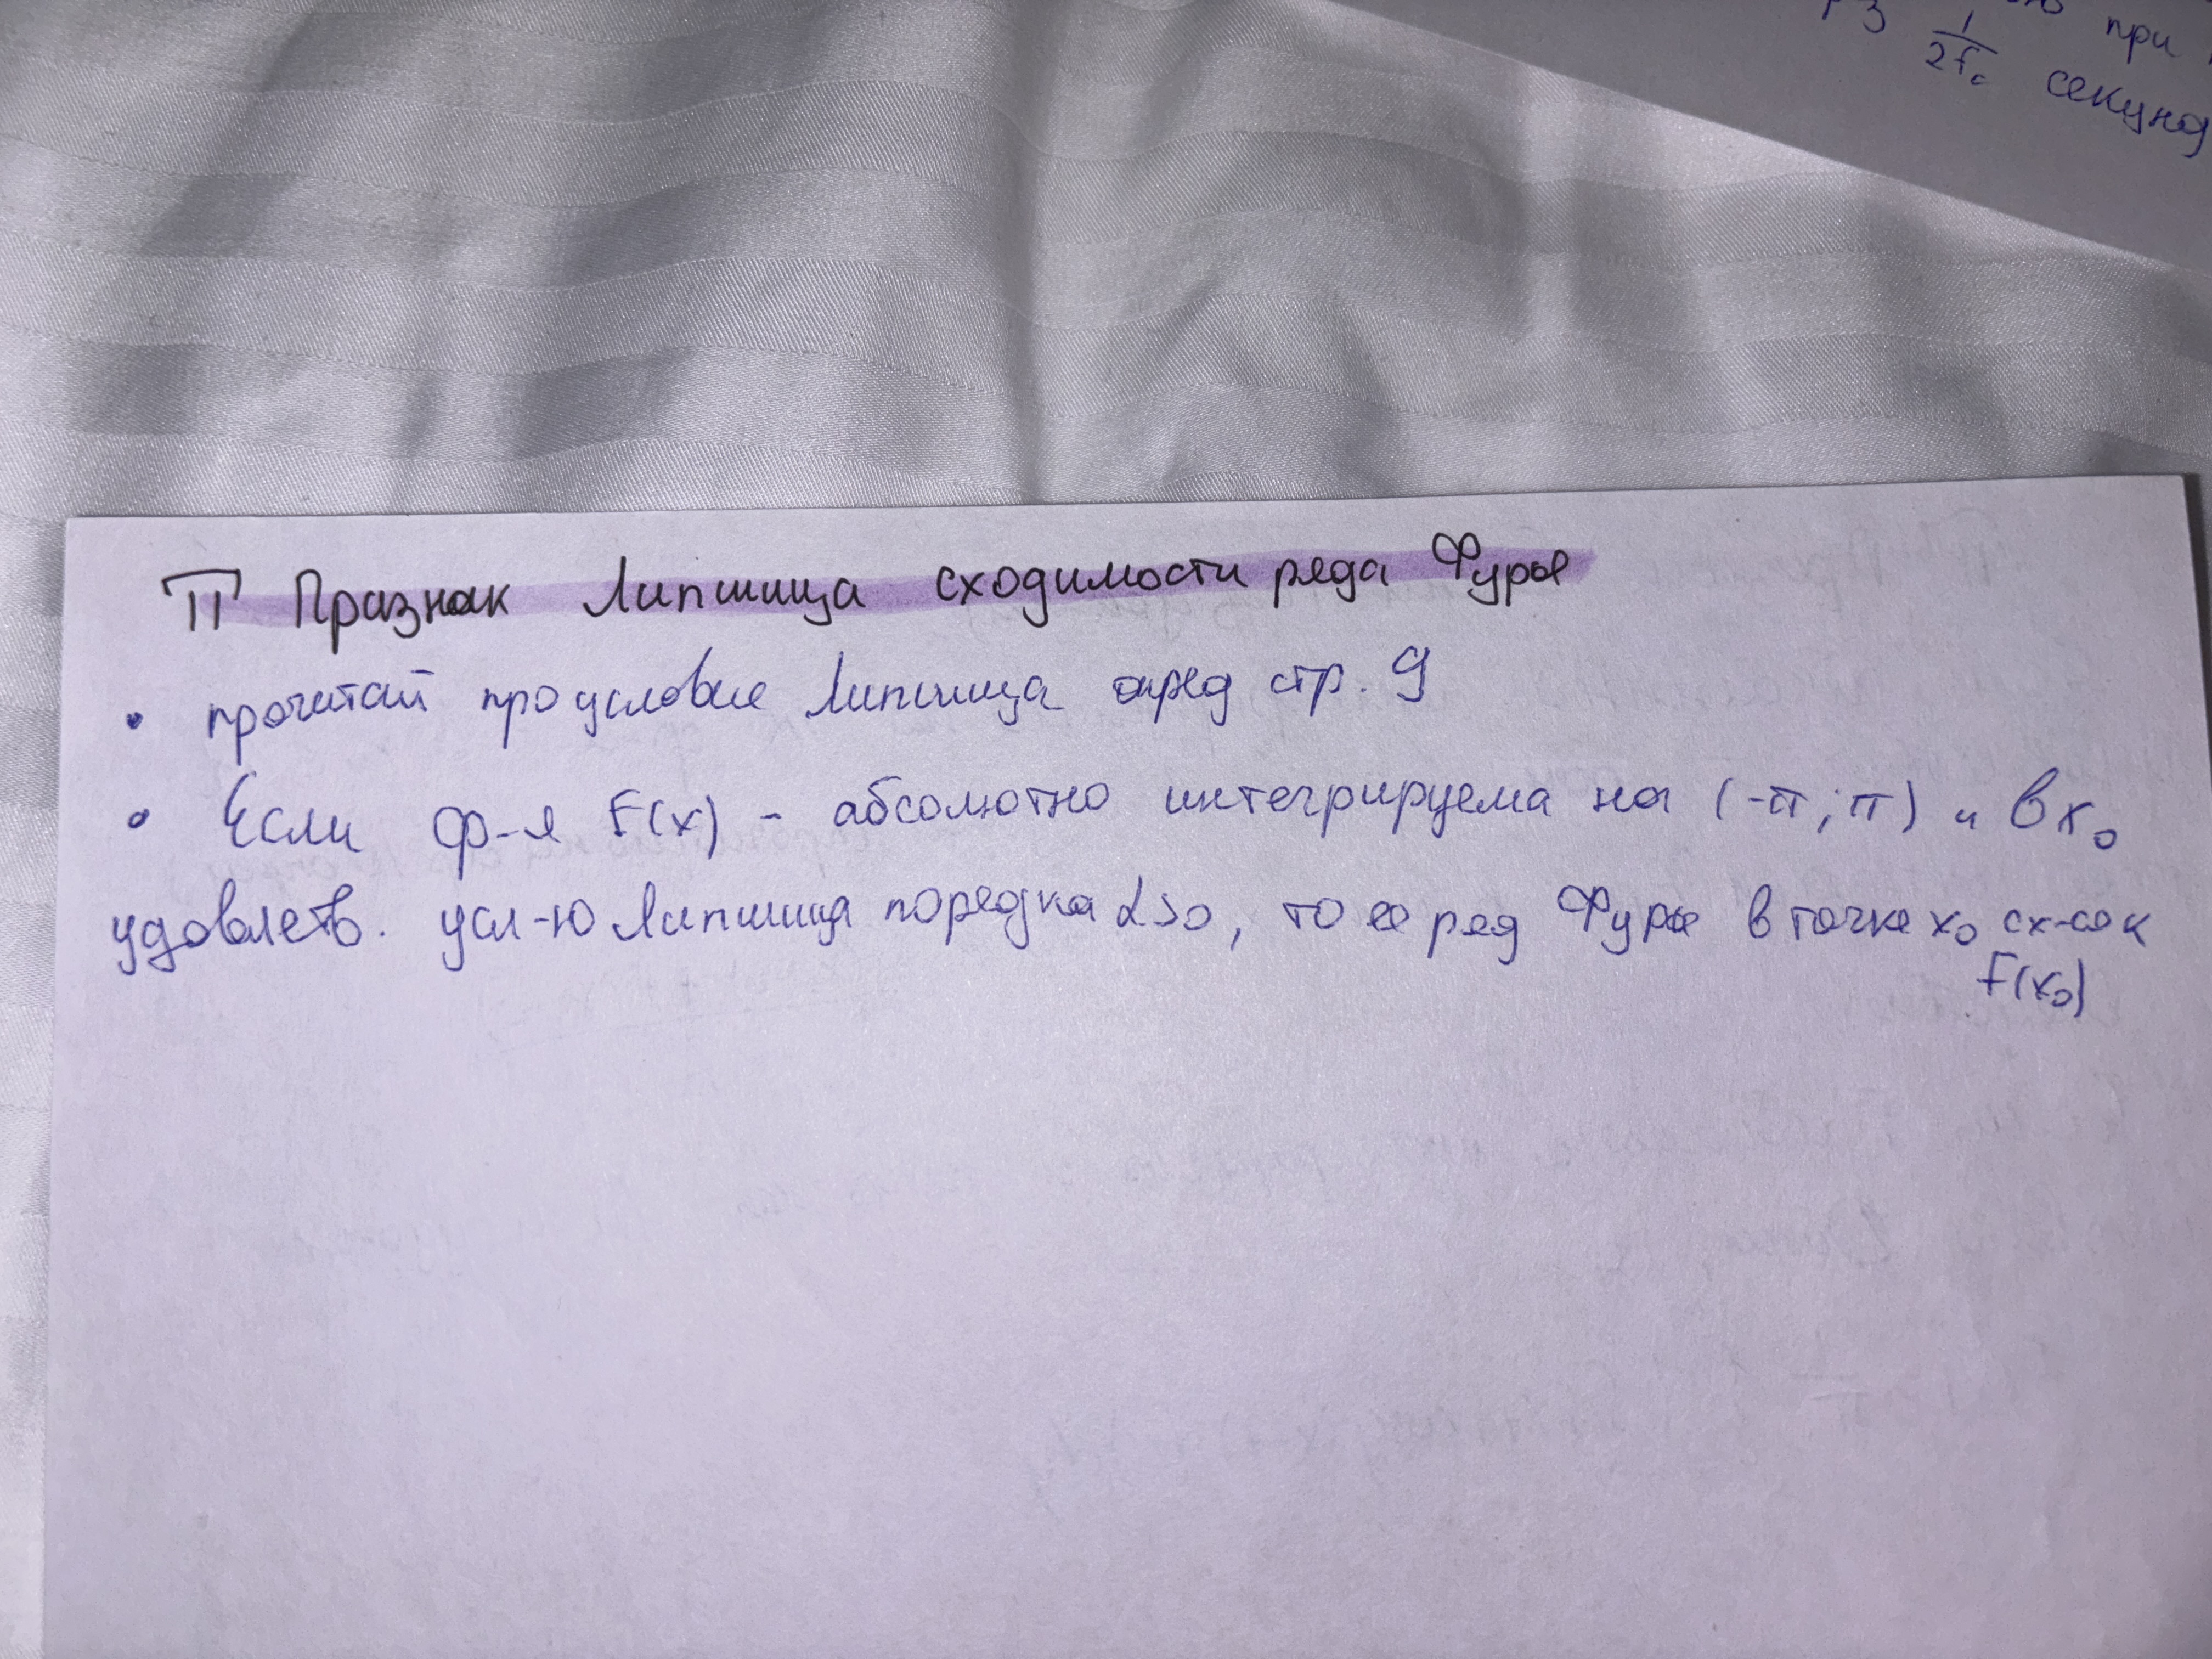 при
1/2Fc секунд
П Признак Липшица сходимости ряда Фурье
• прочитай про условие Липшица опред стр. 9
• Если ф-я F(x) - абсолютно интегрируема на (-π; π) и в x₀
удовлетв. усл-ю Липшица порядка α>0, то ее ряд Фурье в точке x₀ сх-ся к
F(x₀)